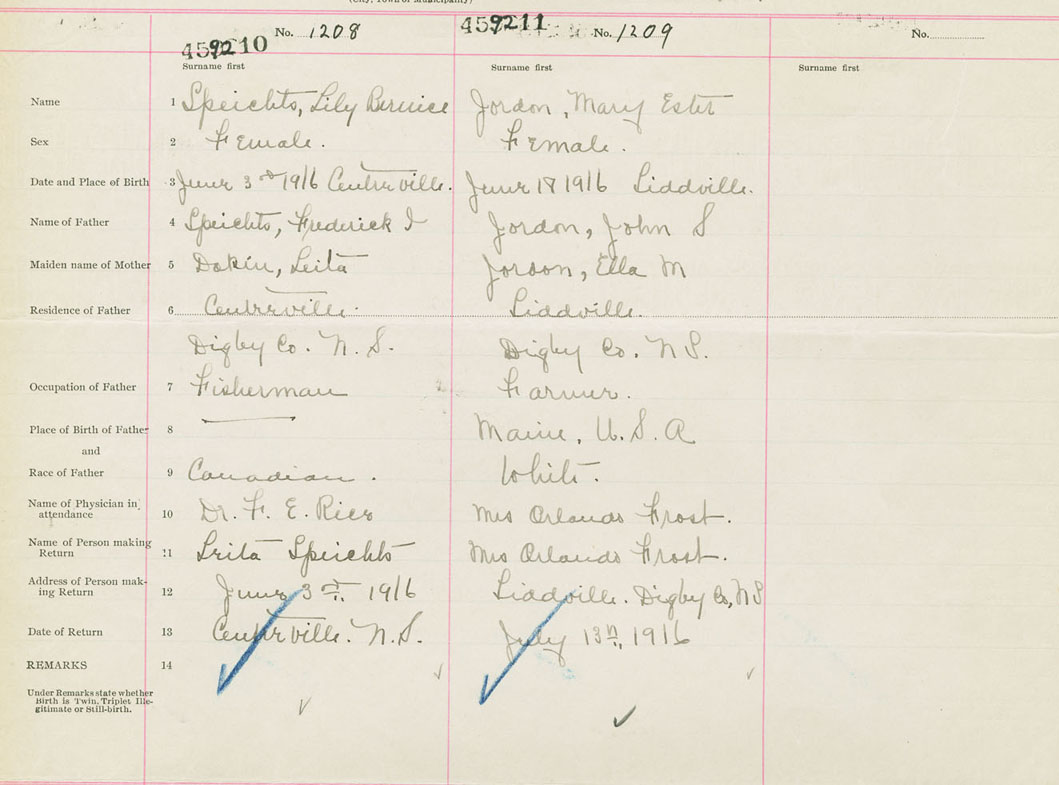 (City, Town or Municipality)
459210 No. 1208 459211 No. 1209 No.
Surname first Surname first Surname first
Name 1 Speichts, Lily Bernice Jordon, Mary Ester
Sex 2 Female. Female.
Date and Place of Birth 3 June 3rd 1916 Centreville. June 18 1916 Liddville.
Name of Father 4 Speichts, Frederick I Jordon, John S
Maiden name of Mother 5 Dakin, Leita Jordon, Ella M
Residence of Father 6 Centreville. Liddville.
Digby Co. N. S. Digby Co. N S.
Occupation of Father 7 Fisherman Farmer.
Place of Birth of Father 8 Maine, U. S. A
and
Race of Father 9 Canadian. White.
Name of Physician in attendance 10 Dr. F. E. Rice Mrs Orlando Frost.
Name of Person making Return 11 Leita Speichts Mrs Orlando Frost.
Address of Person making Return 12 June 3rd, 1916 Liddville. Digby Co, N S
Date of Return 13 Centreville. N. S. July 13th, 1916
REMARKS 14
Under Remarks state whether
Birth is Twin, Triplet Ille-
gitimate or Still-birth.